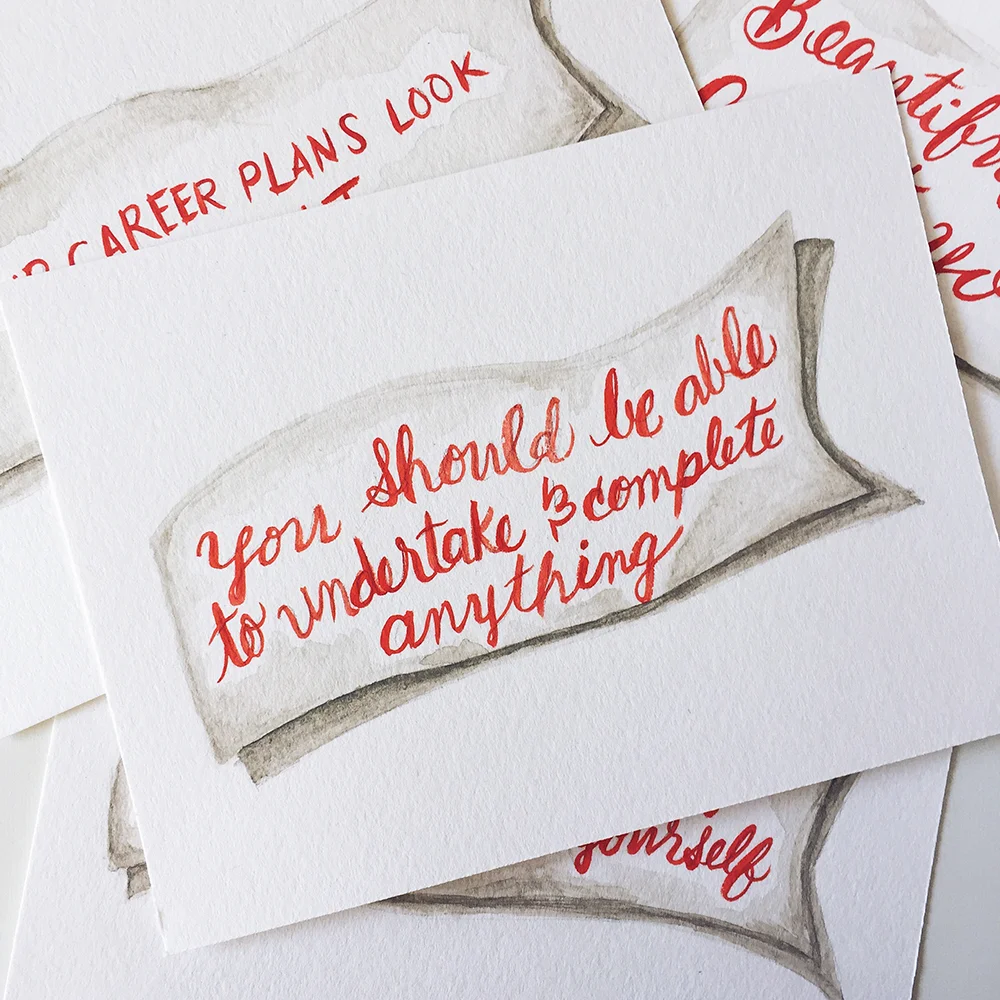 CAREER PLANS LOOK
Beautiful
You should be able
to undertake & complete
anything
yourself